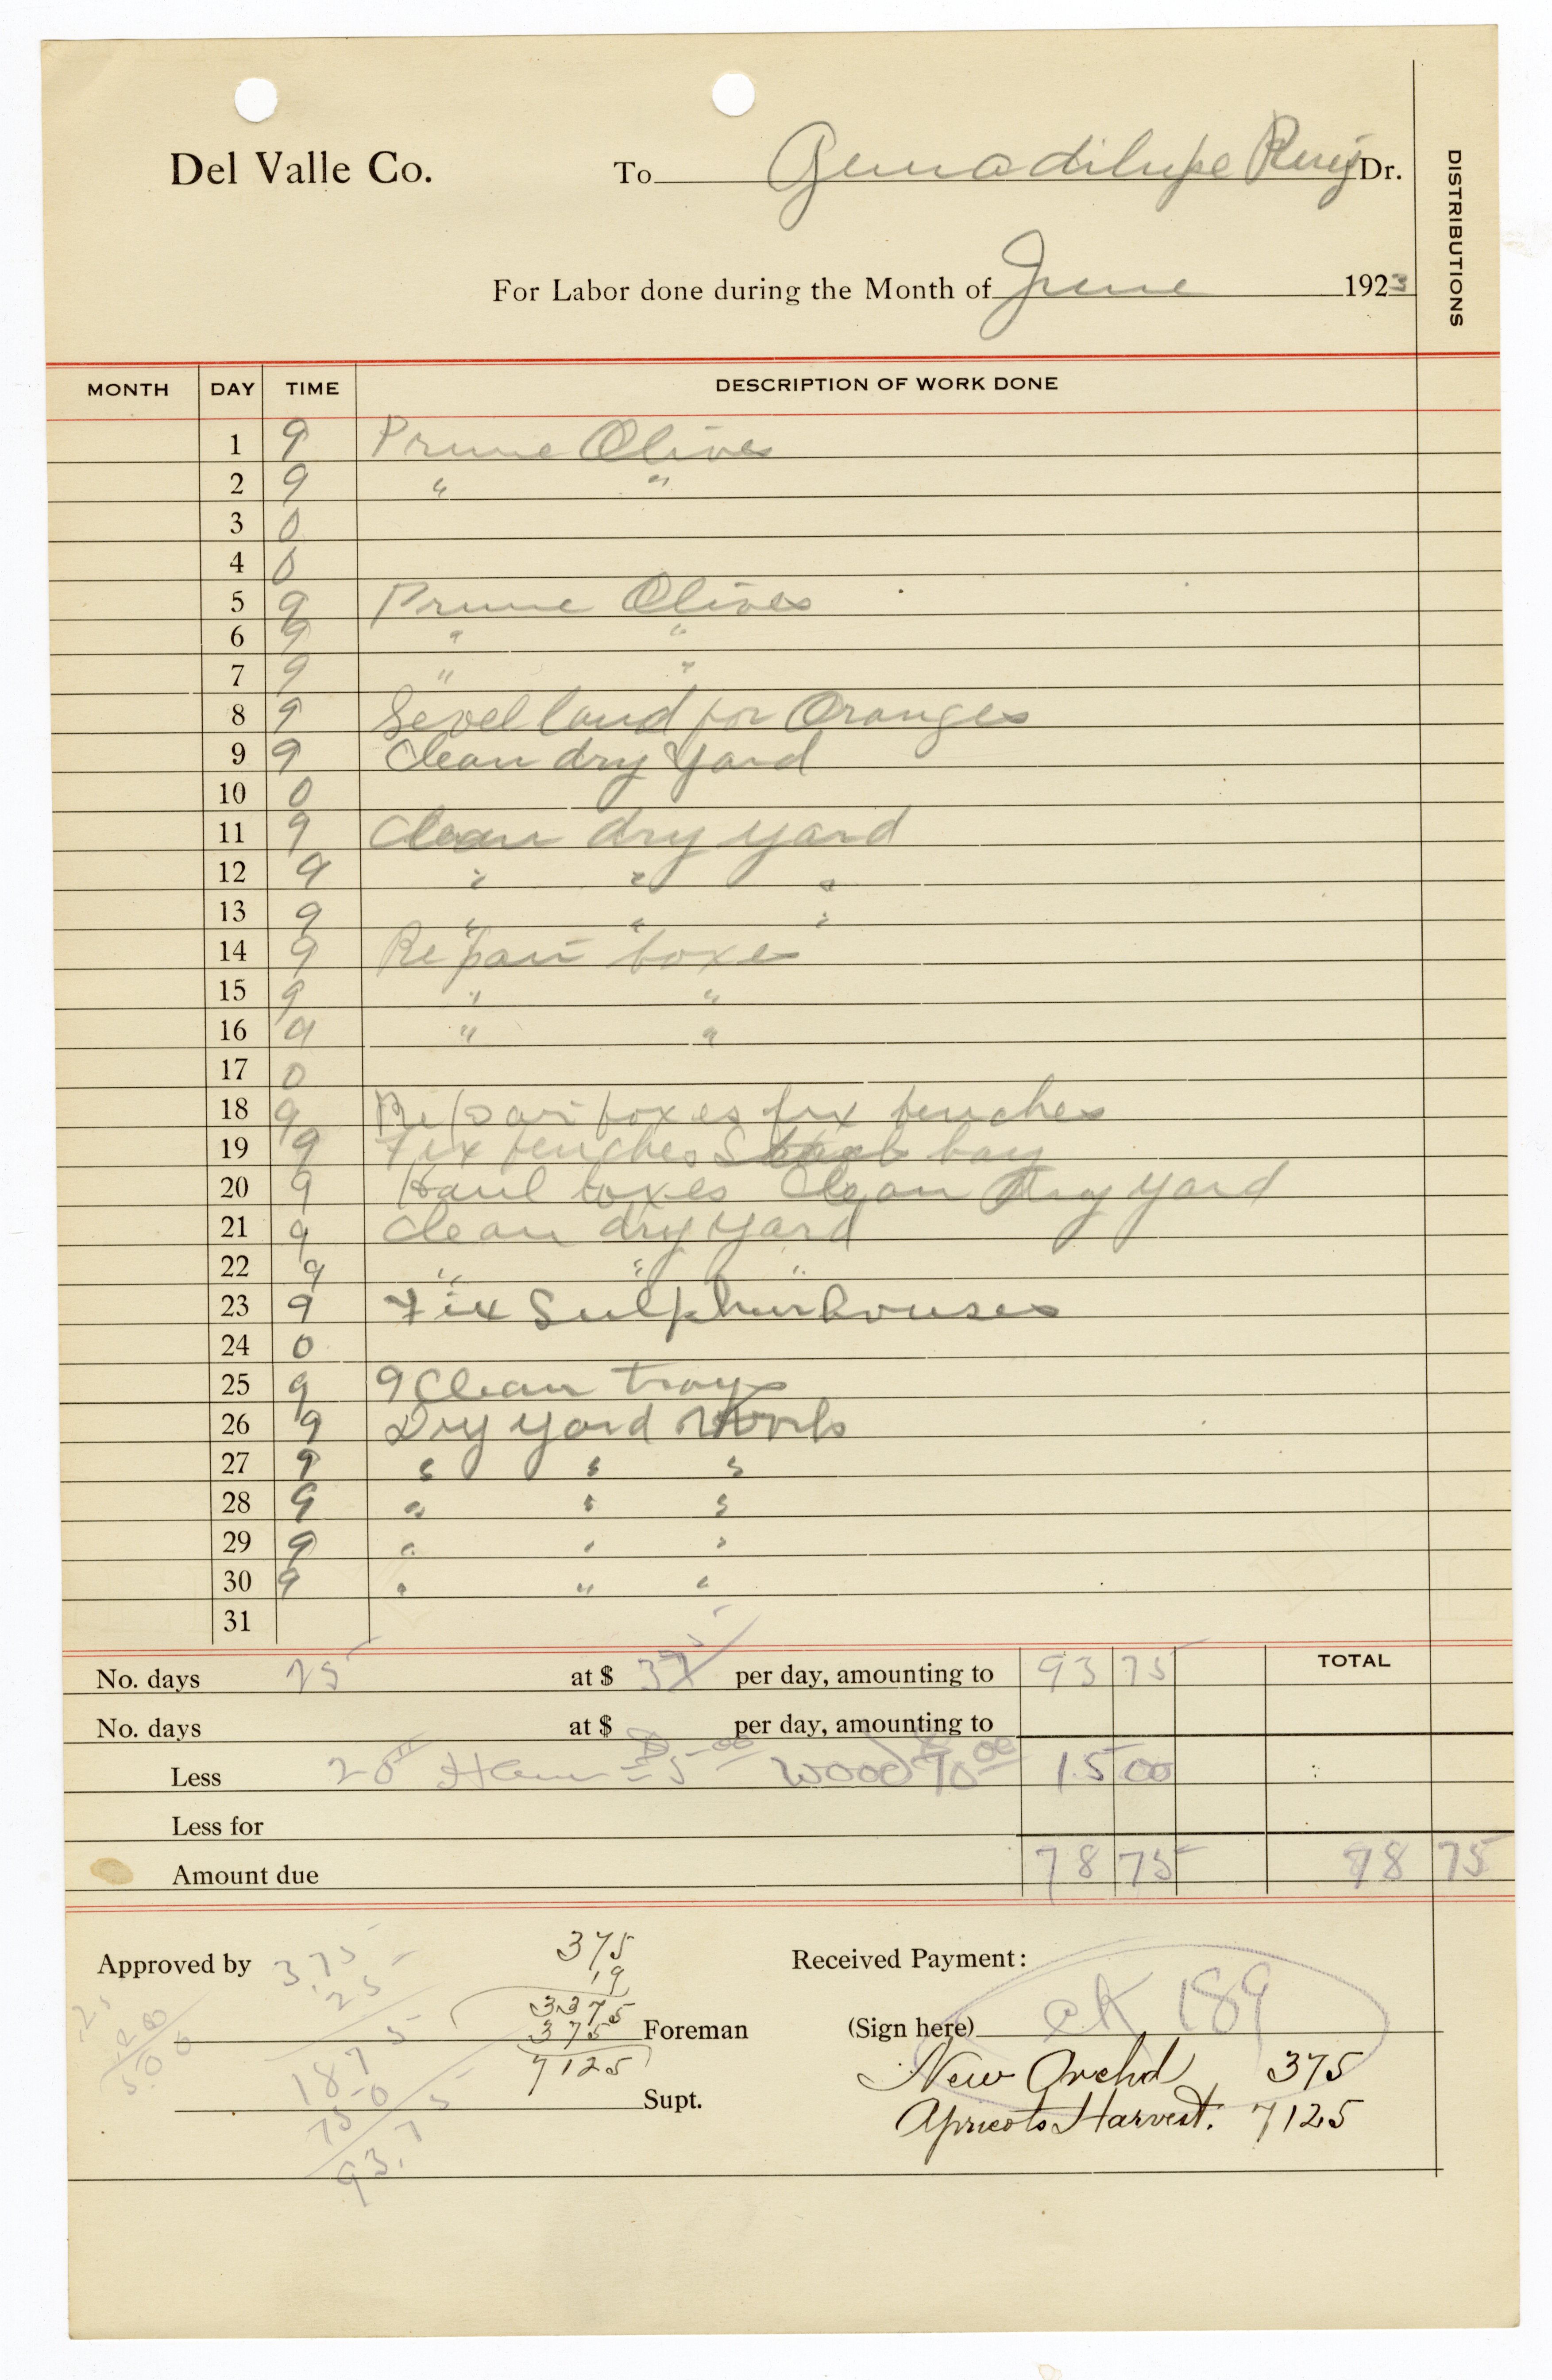 Del Valle Co. To Guuadilupe Ruiz Dr.
For Labor done during the Month of June 1923
DISTRIBUTIONS
MONTH DAY TIME DESCRIPTION OF WORK DONE
1 9 Prune Olives
2 9 " "
3 0
4 0
5 9 Prune Olives
6 9 " "
7 9 " "
8 9 Level land for Oranges
9 9 Clean dry Yard
10 0
11 9 Clean dry yard
12 9 " " "
13 9 " " "
14 9 Repair boxes
15 9 " "
16 9 " "
17 0
18 9 Repair boxes fix benches
19 9 Fix benches hay
20 9 Haul boxes Clean dry yard
21 9 Clean dry yard
22 9 " " "
23 9 Fix Sulphur houses
24 0
25 9 9 Clean trays
26 9 Dry yard Work
27 9 " " "
28 9 " " "
29 9 " " "
30 9 " " "
31
No. days 25 at $ 375 per day, amounting to 93 75 TOTAL
No. days at $ per day, amounting to
Less 20 $5 00 wood $10 00 15 00
Less for
Amount due 78 75 78 75
Approved by
3.75
25
187 5
75 0
93.75
.25
20
5.00
375
19
3375
375
7125
Foreman
Supt.
Received Payment:
(Sign here) CK 189
New Orchd 375
Apricots Harvest. 7125